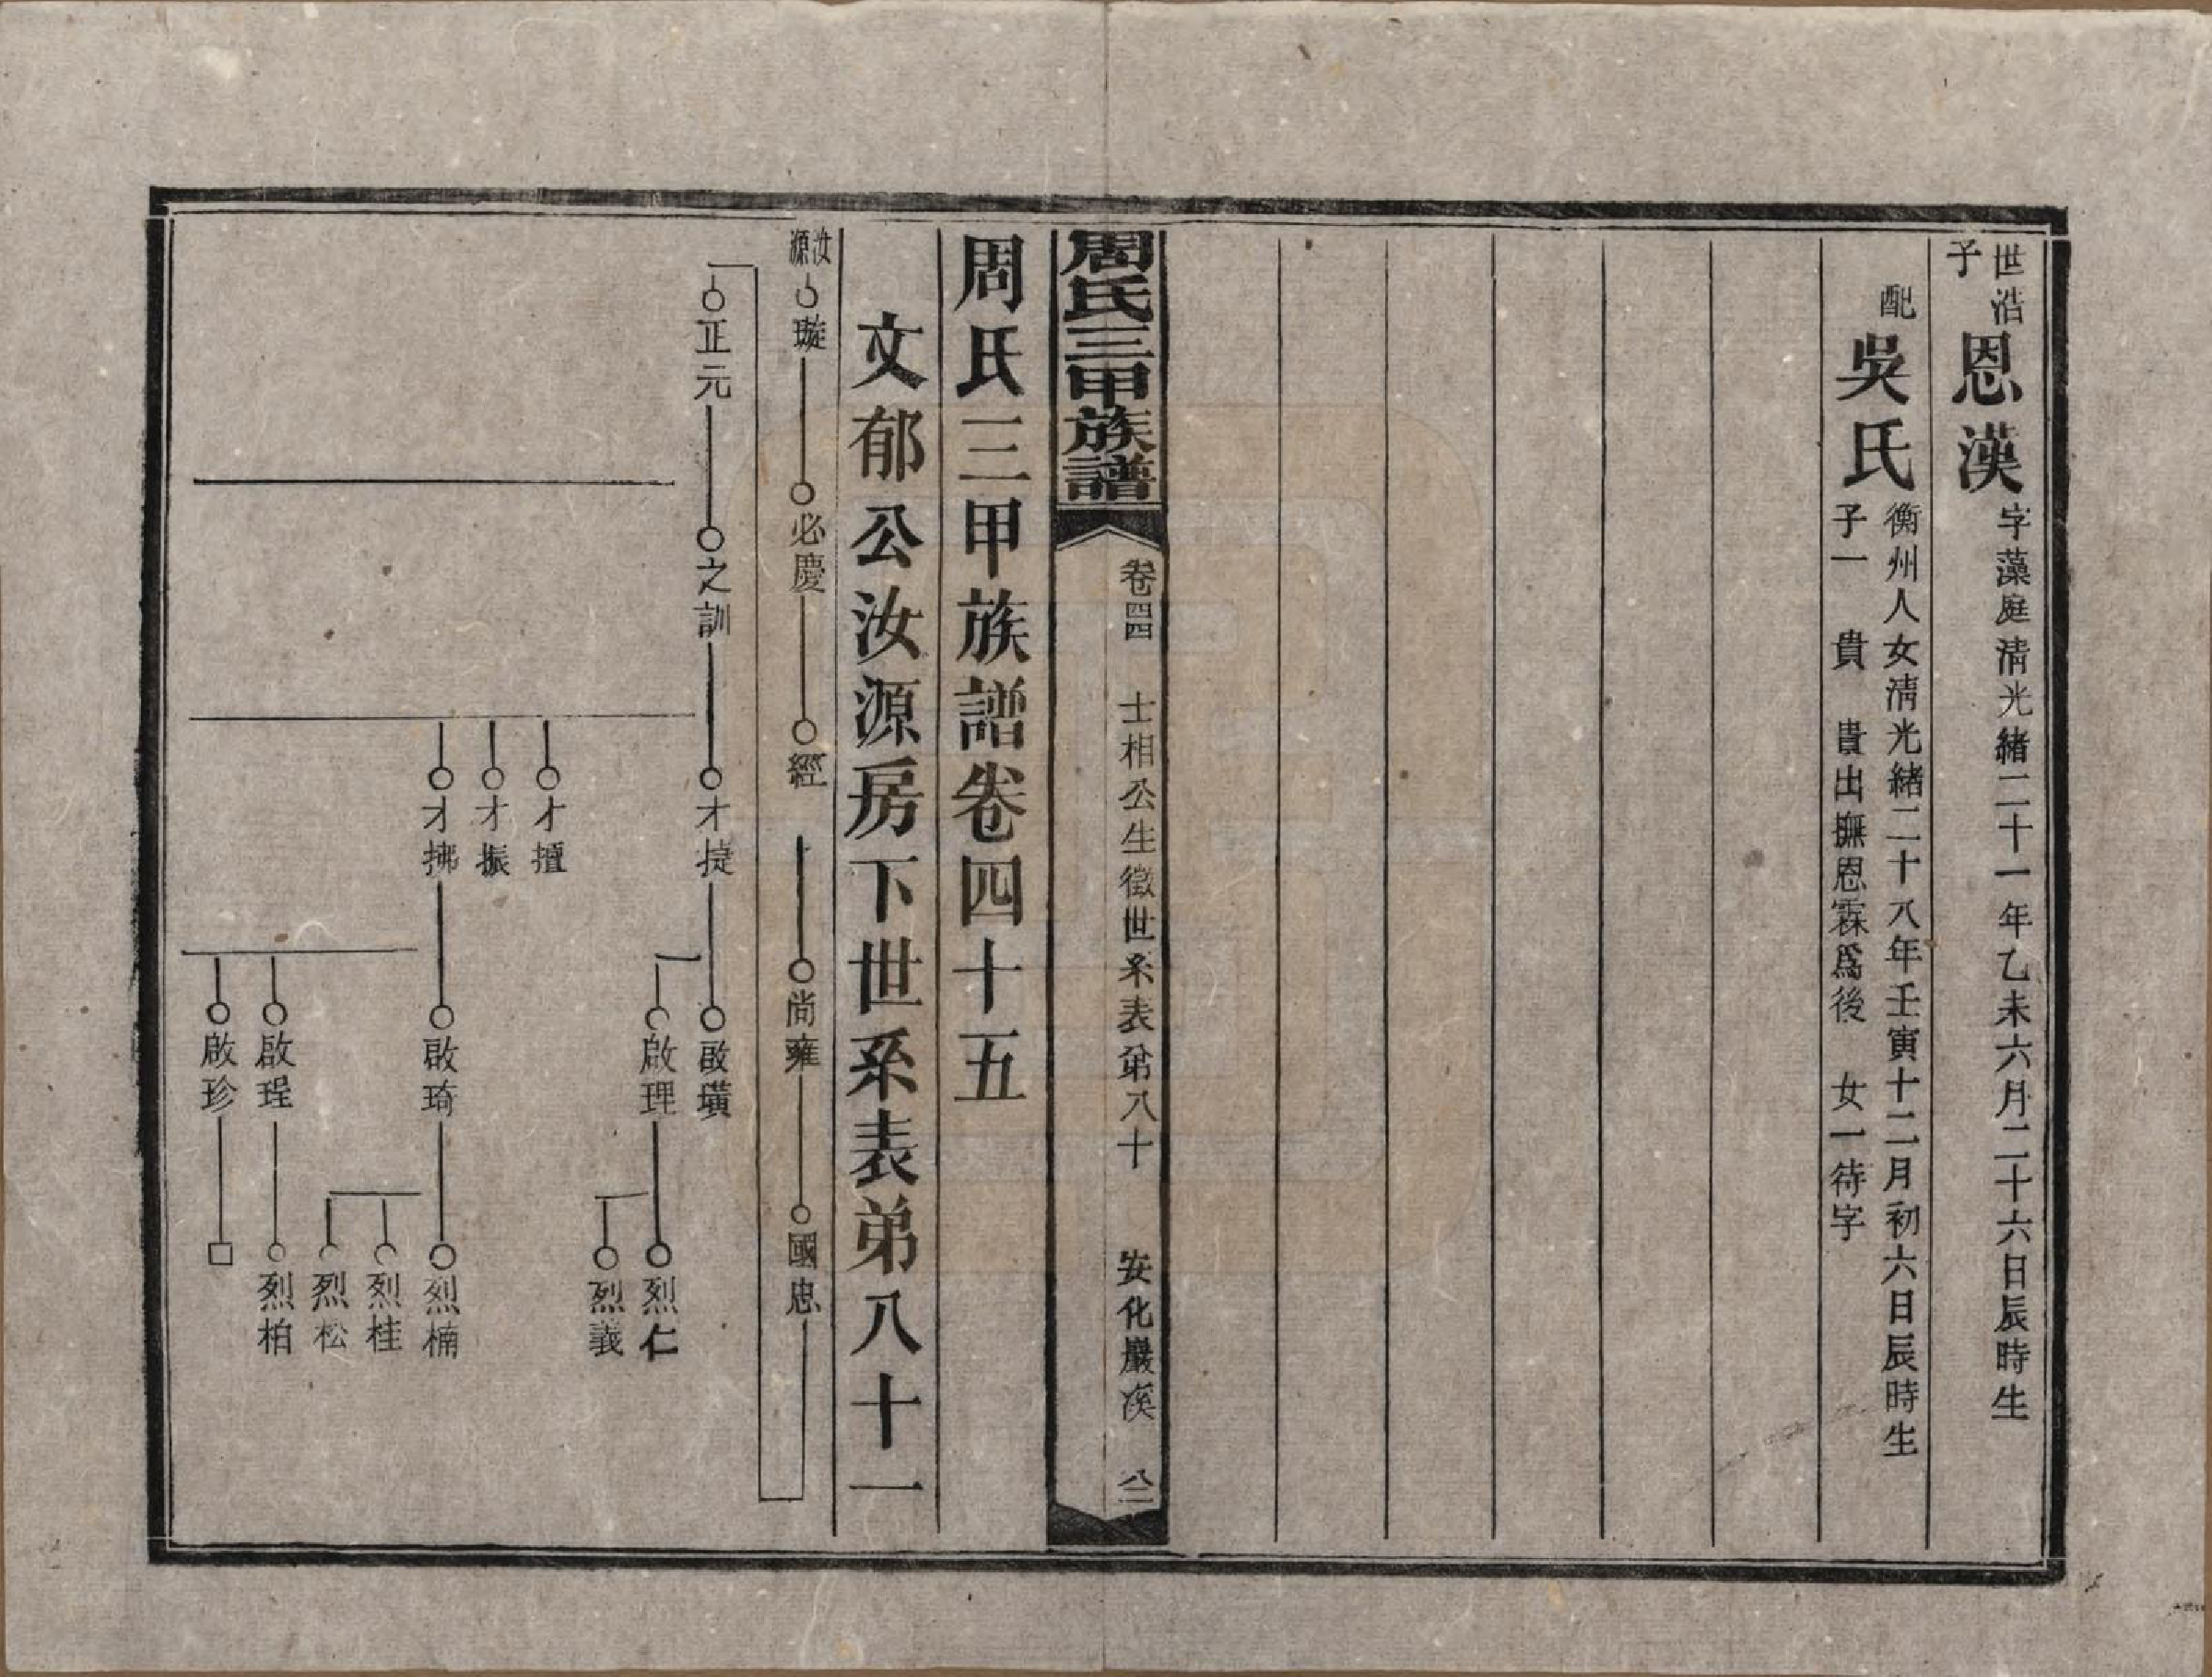 世浩子
恩漢
字藻庭清光緒二十一年乙未六月二十六日辰時生
配
吳氏
衡州人女清光緒二十八年壬寅十二月初六日辰時生
子一 貴 貴出撫恩霖爲後 女一待字
周氏三甲族譜
卷四四 士相公生徵世系表弟八十 安化巖溪 八二
周氏三甲族譜卷四十五
文郁公汝源房下世系表弟八十一
汝源 璇 必慶 經 尚雍 國忠
正元 之訓 才㨗 啟璜
啟理 烈仁
烈義
才擅
才振
才拂 啟琦 烈楠
烈桂
烈松
啟珵 烈柏
啟珍